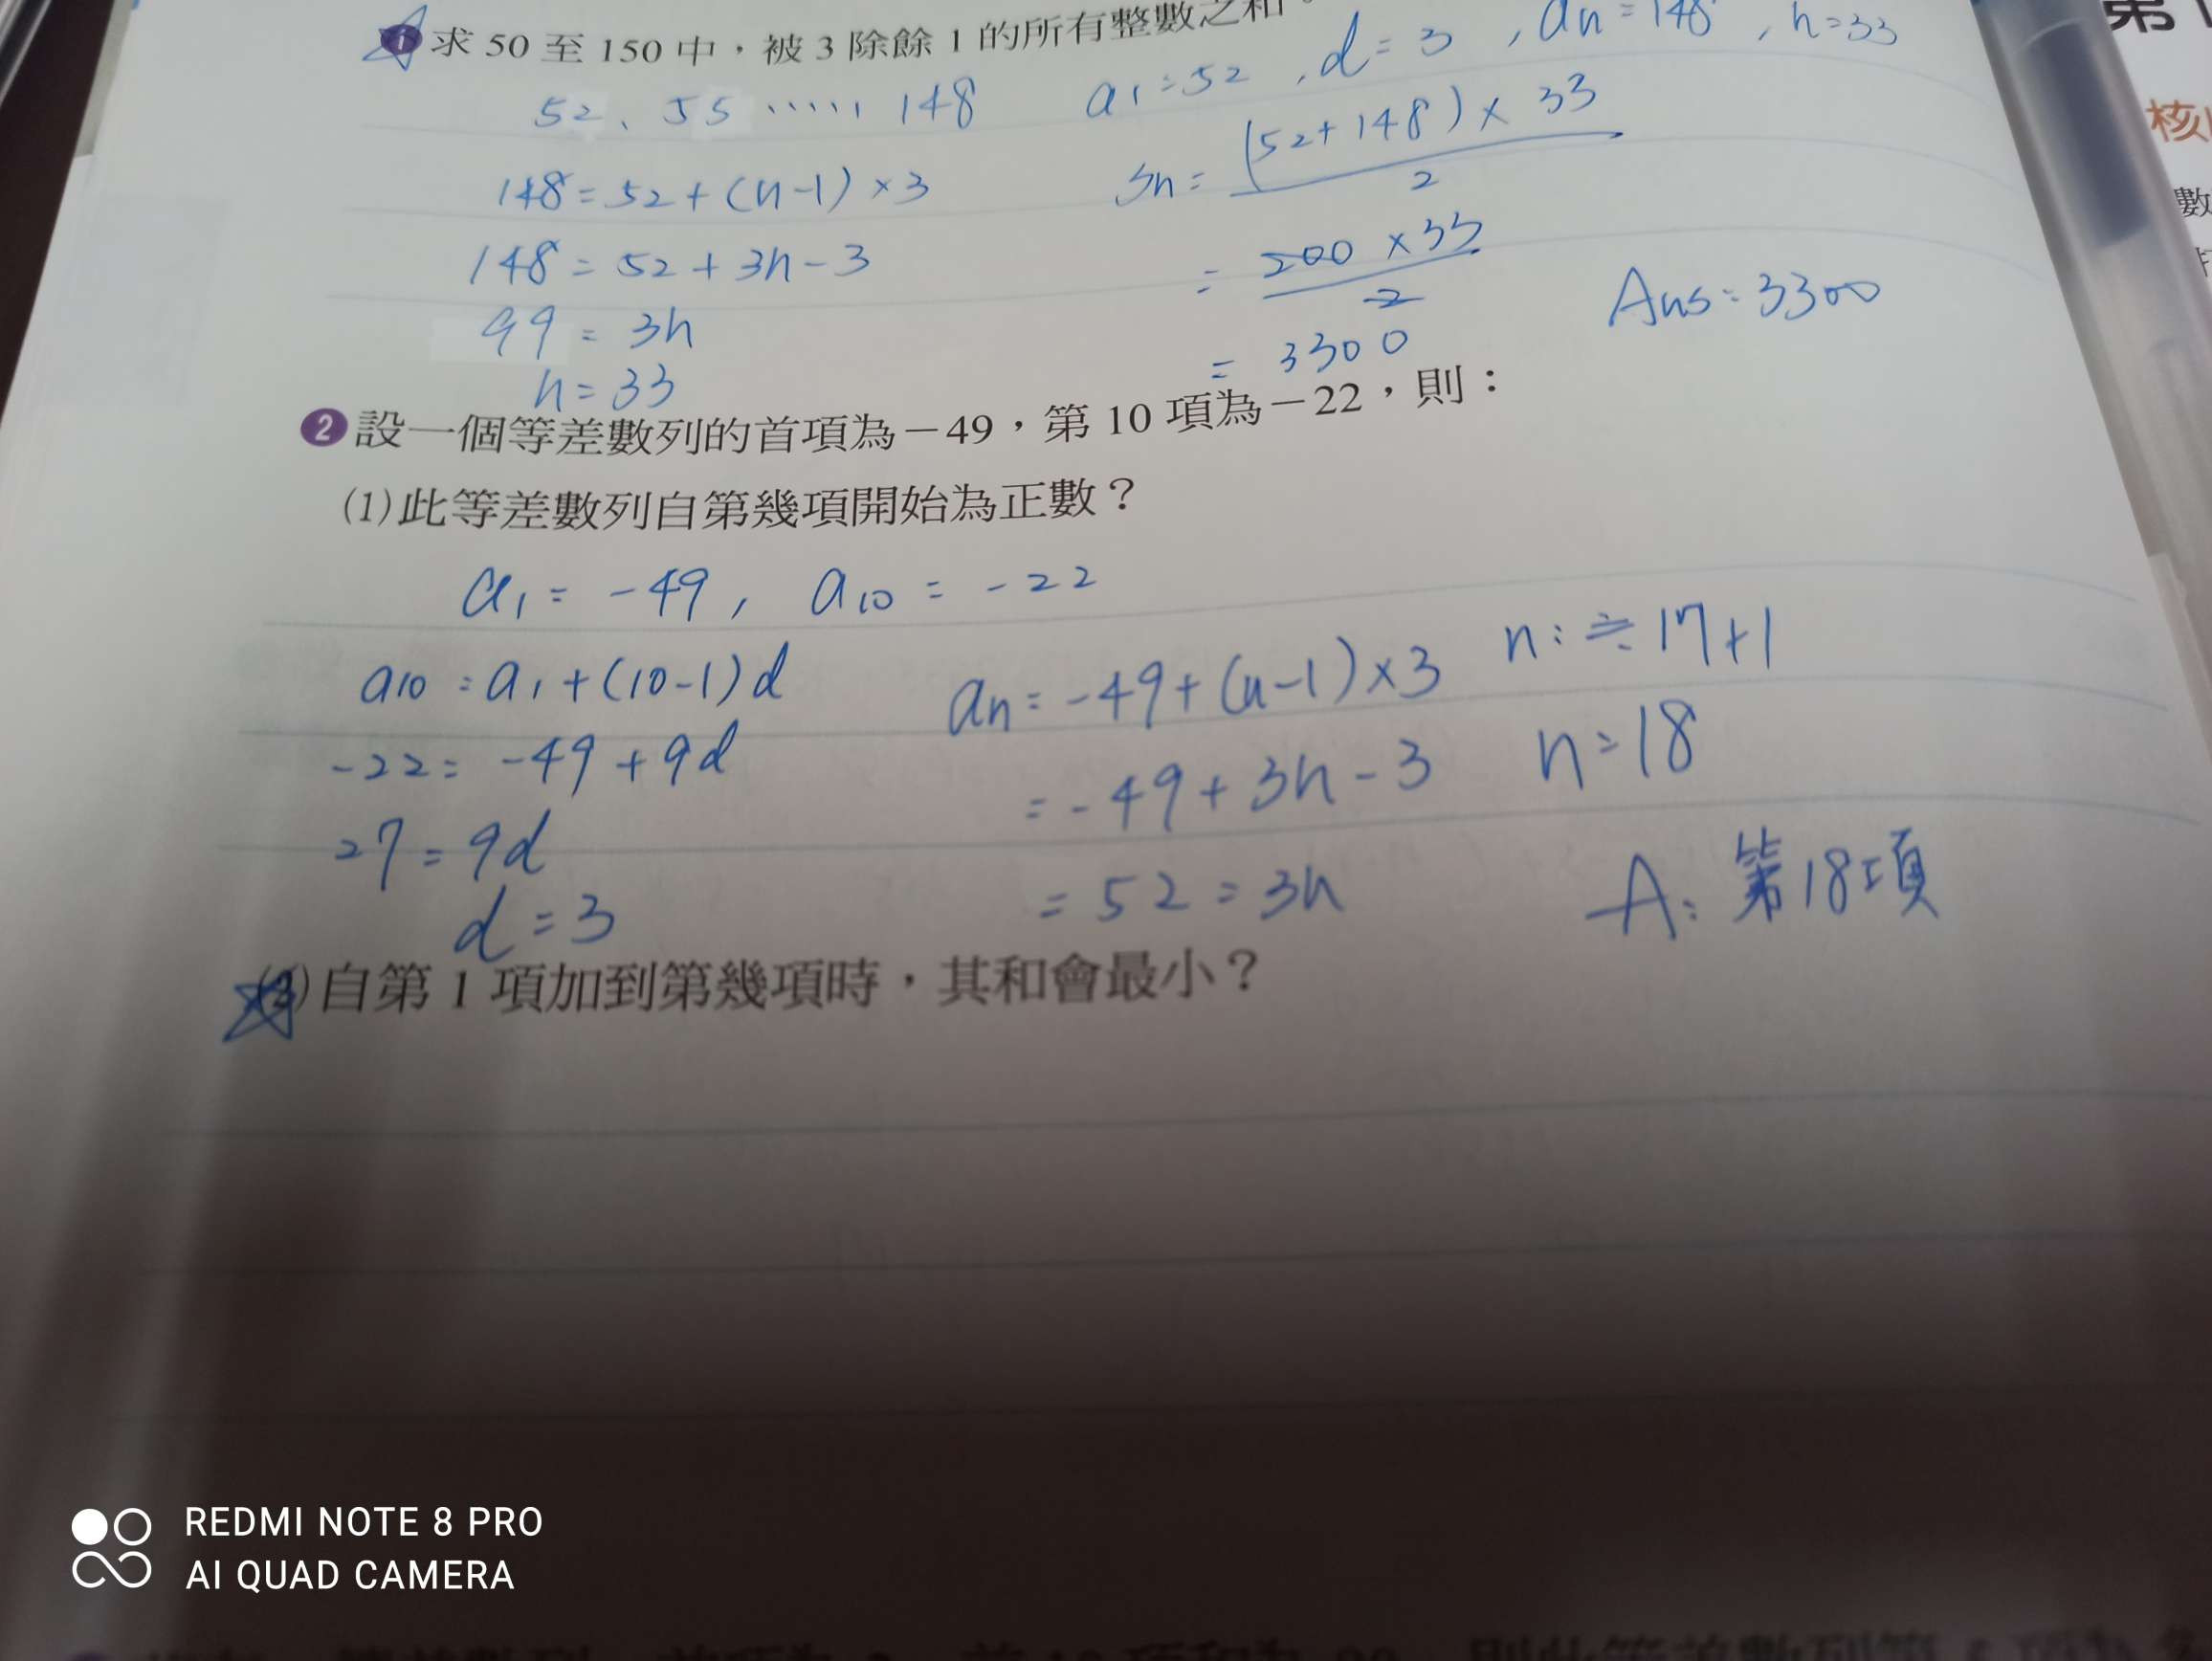 1 求 50 至 150 中，被 3 除餘 1 的所有整數之和。
52、55 ····· 148
a1=52 , d=3 , an=148 , n=33
148=52+(n-1)×3
148=52+3n-3
99=3n
n=33
Sn=(52+148)×33/2
=200×33/2
=3300
Ans:3300
2 設一個等差數列的首項為－49，第 10 項為－22，則：
(1)此等差數列自第幾項開始為正數？
a1=-49, a10=-22
a10=a1+(10-1)d
-22=-49+9d
27=9d
d=3
an=-49+(n-1)×3
=-49+3n-3
=52=3n
n:≒17+1
n=18
A:第18項
(2)自第 1 項加到第幾項時，其和會最小？
第
核
數
REDMI NOTE 8 PRO
AI QUAD CAMERA